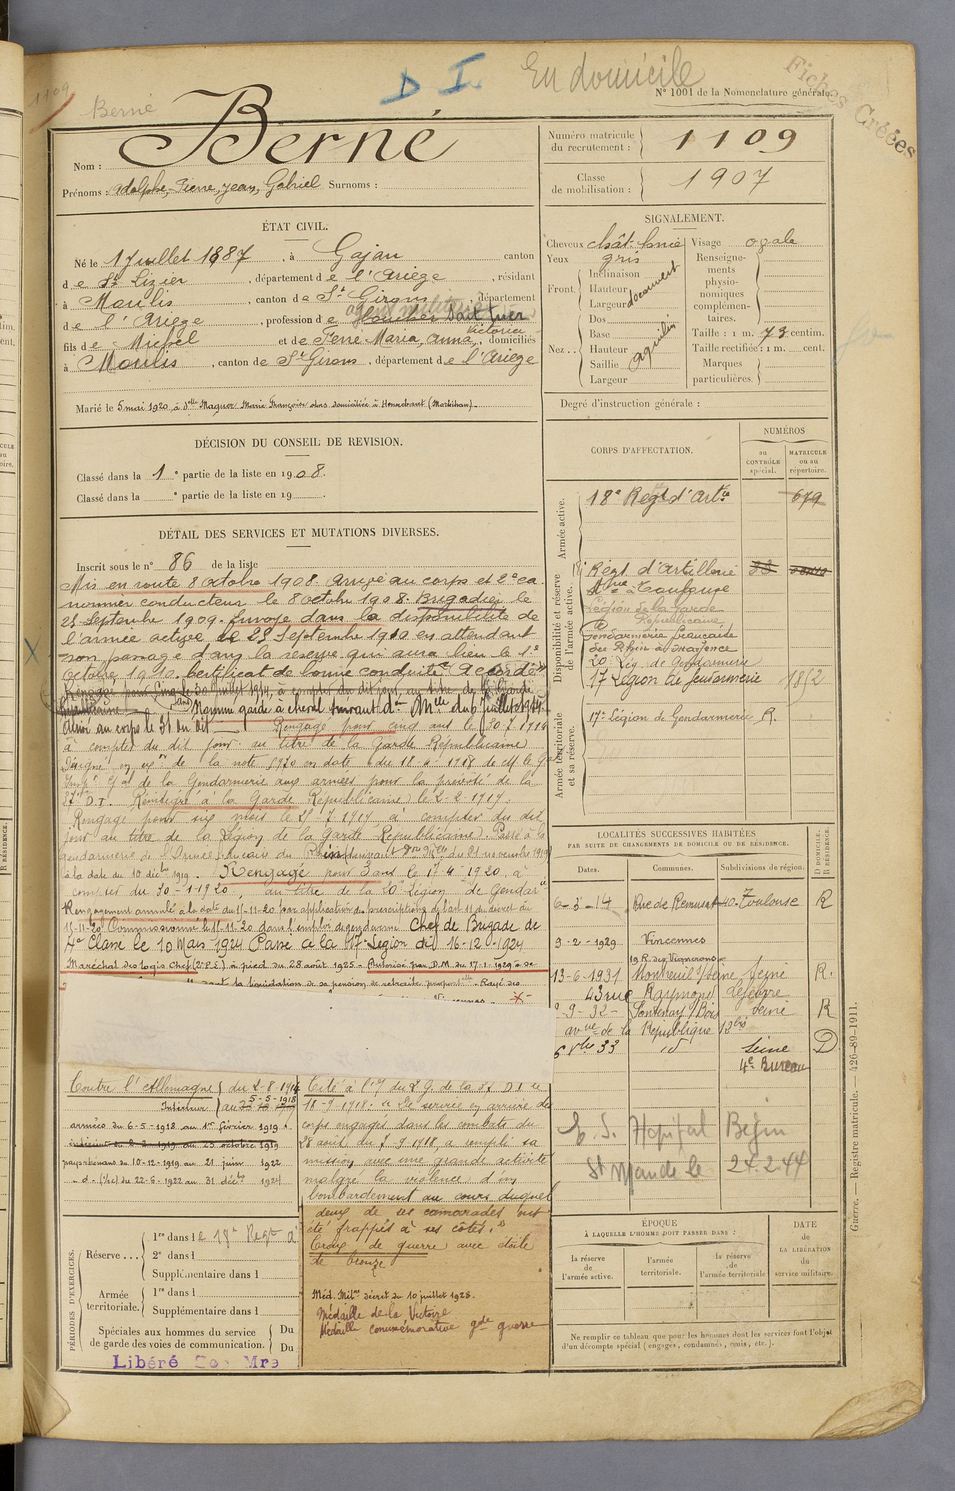 1109
Berné
D I.
En domicile
Fiches Créées
N° 1001 de la Nomenclature générale.
Nom : Berné
Prénoms : Adolphe, Pierre, Jean, Gabriel Surnoms :
ÉTAT CIVIL.
Né le 1 Juillet 1887, à Gajan canton
de St Lizier, département de l'Ariège, résidant
à Moulis, canton de St Girons, département
de l'Ariège, profession de boucher
fils de Michel et de Ferré Maria, Anna, Victorine, domiciliés
à Moulis, canton de St Girons, département de l'Ariège
Marié le 5 mai 1920 à Dlle Maguer Marie Françoise alors domiciliée à Hennebont (Morbihan).
DÉCISION DU CONSEIL DE REVISION.
Classé dans la 1e partie de la liste en 1908.
Classé dans la e partie de la liste en 19 .
DÉTAIL DES SERVICES ET MUTATIONS DIVERSES.
Inscrit sous le n° 86 de la liste
Mis en route 8 octobre 1908. Arrivé au corps et 2e ca-
nonnier conducteur le 8 octobre 1908. Brigadier le
25 Septembre 1909. Envoyé dans la disponibilité de
l'armée active le 25 Septembre 1910 en attendant
son passage dans la réserve qui aura lieu le 1er
Octobre 1910. Certificat de bonne conduite "Accordé"
Nommé garde à cheval suivant don Mlle du 6 juillet 1914.
Arrivé au corps le 31 du dit. Rengagé pour cinq ans le 30.7.1914
à compter du dit jour au titre de la Garde Républicaine
de la Gendarmerie aux armées pour la prévôté de la
37e D.I. Réintégré à la Garde Républicaine le 2-2-1919.
Rengagé pour six mois le 25-7-1919 à compter du dit
jour au titre de la Légion de la Garde Républicaine. Passé à la
gendarmerie de novembre 1919
à la date du 10 décbre 1919. Rengagé pour 3 ans le 17-4-1920 à
compter du 30-1-1920, au titre de la 20e Légion de Gendarie
Rengagement annulé à la date du 15-11-20 par application des prescriptions de l'art 11 du décret du
15-11-20. Commissionné le 15-11-20 dans l'emploi de gendarme Chef de Brigade de
4e Classe le 10 Mars 1924 Passé à la 17e Légion du 16-12-1924
Maréchal des logis Chef (2e P.S.) à pied du 28 août 1925 - Autorisé par D.M. du 17-1-1929 à se
la liquidation de sa pension de retraite Rayé des
Contre l'Allemagne du 2-8-1914
Intérieur au 5-5-1918
armées du 6-5-1918 au 1er février 1919
intérieur 2-2-1919 au 23 octobre 1919
pays rhénans du 10-12-1919 au 21 juin 1922
- d - du 22-6-1922 au 31 décbre 1924
Cité à l'
18-9-1918. a été service en arrière des
corps engagés dans les combats du
28 août du 7-9-1918, a rempli sa
mission avec une grande activité
malgré la violence d'un
bombardement au cours duquel
deux de ses camarades ont
été frappés à ses côtés.
Croix de guerre avec étoile
de bronze
Méd. Milre décret du 10 juillet 1928.
Médaille de la Victoire
Médaille commémorative gde guerre
PÉRIODES D'EXERCICES.
Réserve ... 1re dans le 18e Régt d'
2e dans l
Supplémentaire dans l
Armée territoriale. 1re dans l
Supplémentaire dans l
Spéciales aux hommes du service Du
de garde des voies de communication. Du
Libéré
Numéro matricule du recrutement : 1109
Classe de mobilisation : 1907
SIGNALEMENT.
Cheveux chât. foncé
Yeux gris
Front. Inclinaison
Hauteur
Largeur
Nez... Dos
Base
Hauteur
Saillie
Largeur
Visage ovale
Renseigne-
ments
physio-
nomiques
complémen-
taires.
Taille : 1 m. 73 centim.
Taille rectifiée : 1 m. cent.
Marques particulières.
Degré d'instruction générale :
CORPS D'AFFECTATION.
NUMÉROS
au CONTRÔLE spécial.
MATRICULE ou au répertoire.
Armée active.
18e Régt d'Artie 679
Disponibilité et réserve de l'armée active.
18e Régt d'Artillerie
Toulouse
Légion de la Garde
Républicaine
Gendarmerie française
du Rhin
20 Lég. de Gendarmerie
17 Légion de Gendarmerie 1812
Armée territoriale et sa réserve.
17e Légion de Gendarmerie R.
LOCALITÉS SUCCESSIVES HABITÉES
PAR SUITE DE CHANGEMENTS DE DOMICILE OU DE RÉSIDENCE.
Dates. Communes. Subdivisions de région. D DOMICILE. R RÉSIDENCE.
6-3-14 Rue de Rémusat 40 Toulouse R
9-2-1929 Vincennes
19 R. des Vignerons
13-6-1931 Montreuil s/Seine Seine R.
43 rue Raymond Lefebvre
-9-32- Fontenay s/Bois Seine R
avue de la République 13bis
6 8bre 33 id Seine D
4e Bureau
Hopital Begin
St Mandé le 24.2.44
ÉPOQUE
À LAQUELLE L'HOMME DOIT PASSER DANS :
la réserve de l'armée active.
l'armée territoriale.
la réserve de l'armée territoriale
DATE de LA LIBÉRATION du service militaire.
Ne remplir ce tableau que pour les hommes dont les services font l'objet
d'un décompte spécial (engagés, condamnés, omis, etc.).
Guerre. — Registre matricule. — 426-89-1911.